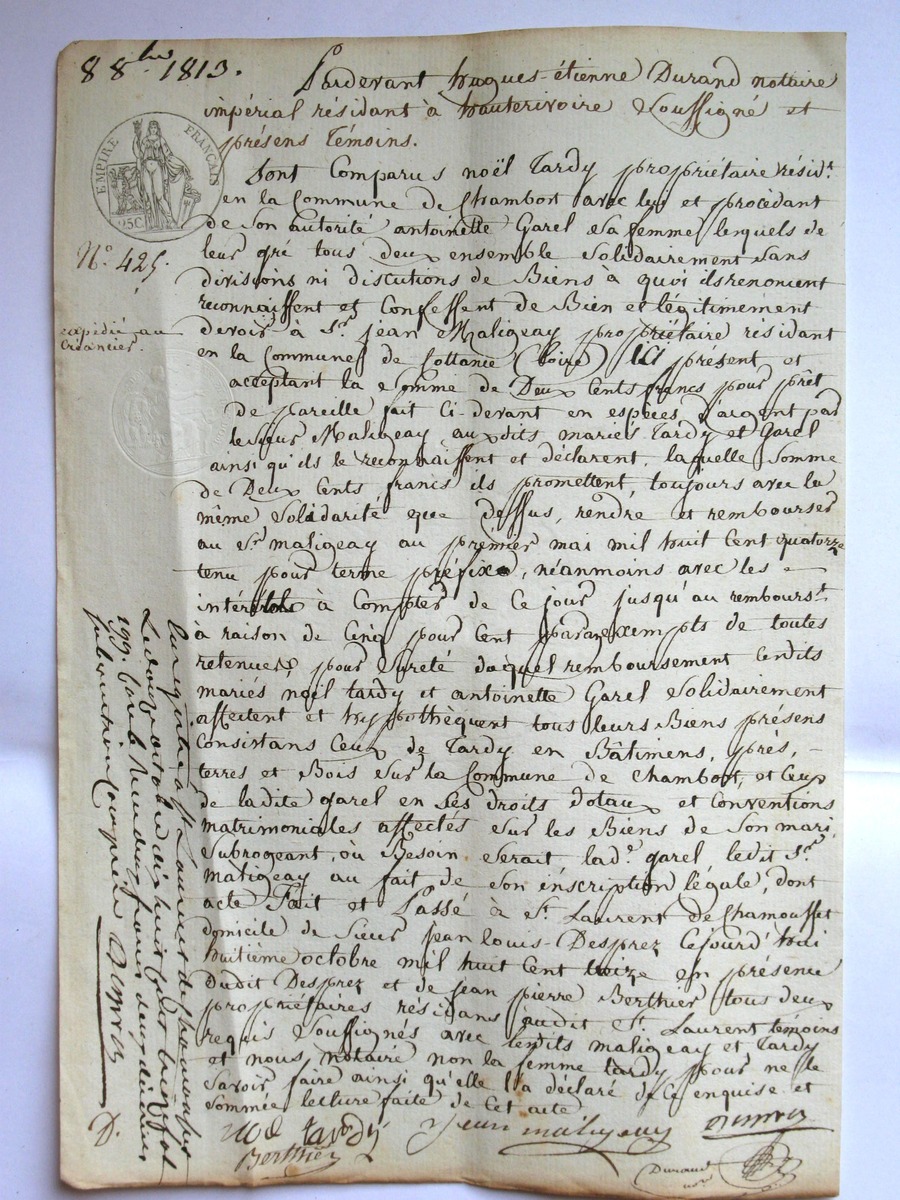 8 8bre 1813.
Pardevant hugues-étienne Durand notaire
impérial résidant à hauterivoire Soussigné et
présens témoins.
EMPIRE FRANÇAIS
25C
Sont Comparus noël Tardy propriétaire résidt.
en la Commune de Chambost avec lui et procédant
de Son autorité antoinette Garel Sa femme, lesquels de
N.º 425.
leur gré tous deux ensemble Solidairement Sans
divisions ni discutions de Biens à quoi ils renoncent
reconnaissent et Confessent de Bien et légitimement
expédié au
Créancier.
devoir à Sr. jean Maligeay propriétaire résidant
en la Commune de Cottance (Loire) ici présent et
acceptant la Somme de Deux Cents francs pour prêt
de pareille fait Ci-devant en espèces d'argent par
le Sieur Maligeay aux dits mariés Tardy et Garel
ainsi qu'ils le reconnaissent et déclarent. laquelle Somme
de Deux Cents francs ils promettent, toujours avec la
même Solidarité que dessus, rendre et rembourser
au Sr. maligeay au premier mai mil huit Cent quatorze
tenu pour terme préfixe, néanmoins avec les
intérêts à Compter de Ce jour jusqu'au rembourst.
à raison de Cinq pour Cent par an exempts de toutes
retenues, pour Sureté duquel remboursement lesdits
mariés noël tardy et antoinette Garel Solidairement
affectent et hypothèquent tous leurs Biens présens
Consistans Ceux de Tardy en Bâtimens, prés,
terres et Bois Sur la Commune de Chambost, et Ceux
de ladite garel en Ses droits dotaux et Conventions
matrimoniales affectés Sur les Biens de Son mari,
Subrogeant, où Besoin Serait lade. garel, ledit Sr.
Maligeay au fait de Son inscription légale, dont
acte Fait et Passé à St. Laurent de Chamousset
domicile de Sieur jean louis Desprez Cejourd'hui
huitième octobre mil huit Cent treize en présence
Dudit Desprez et de jean pierre Berthier tous deux
propriétaires résidans audit St. Laurent témoins
requis Soussignés avec lesdits maligeay et Tardy
et nous, notaire non la femme tardy pour ne le
Savoir faire ainsi qu'elle l'a déclaré de Ce enquise et
Sommée lecture faite de Cet acte
noel tardy Jean maligeay Desprez
Berthier
Durand
nore
Enregistré à St Laurent de chamousset
Le dix huit
199. deux francs
D.